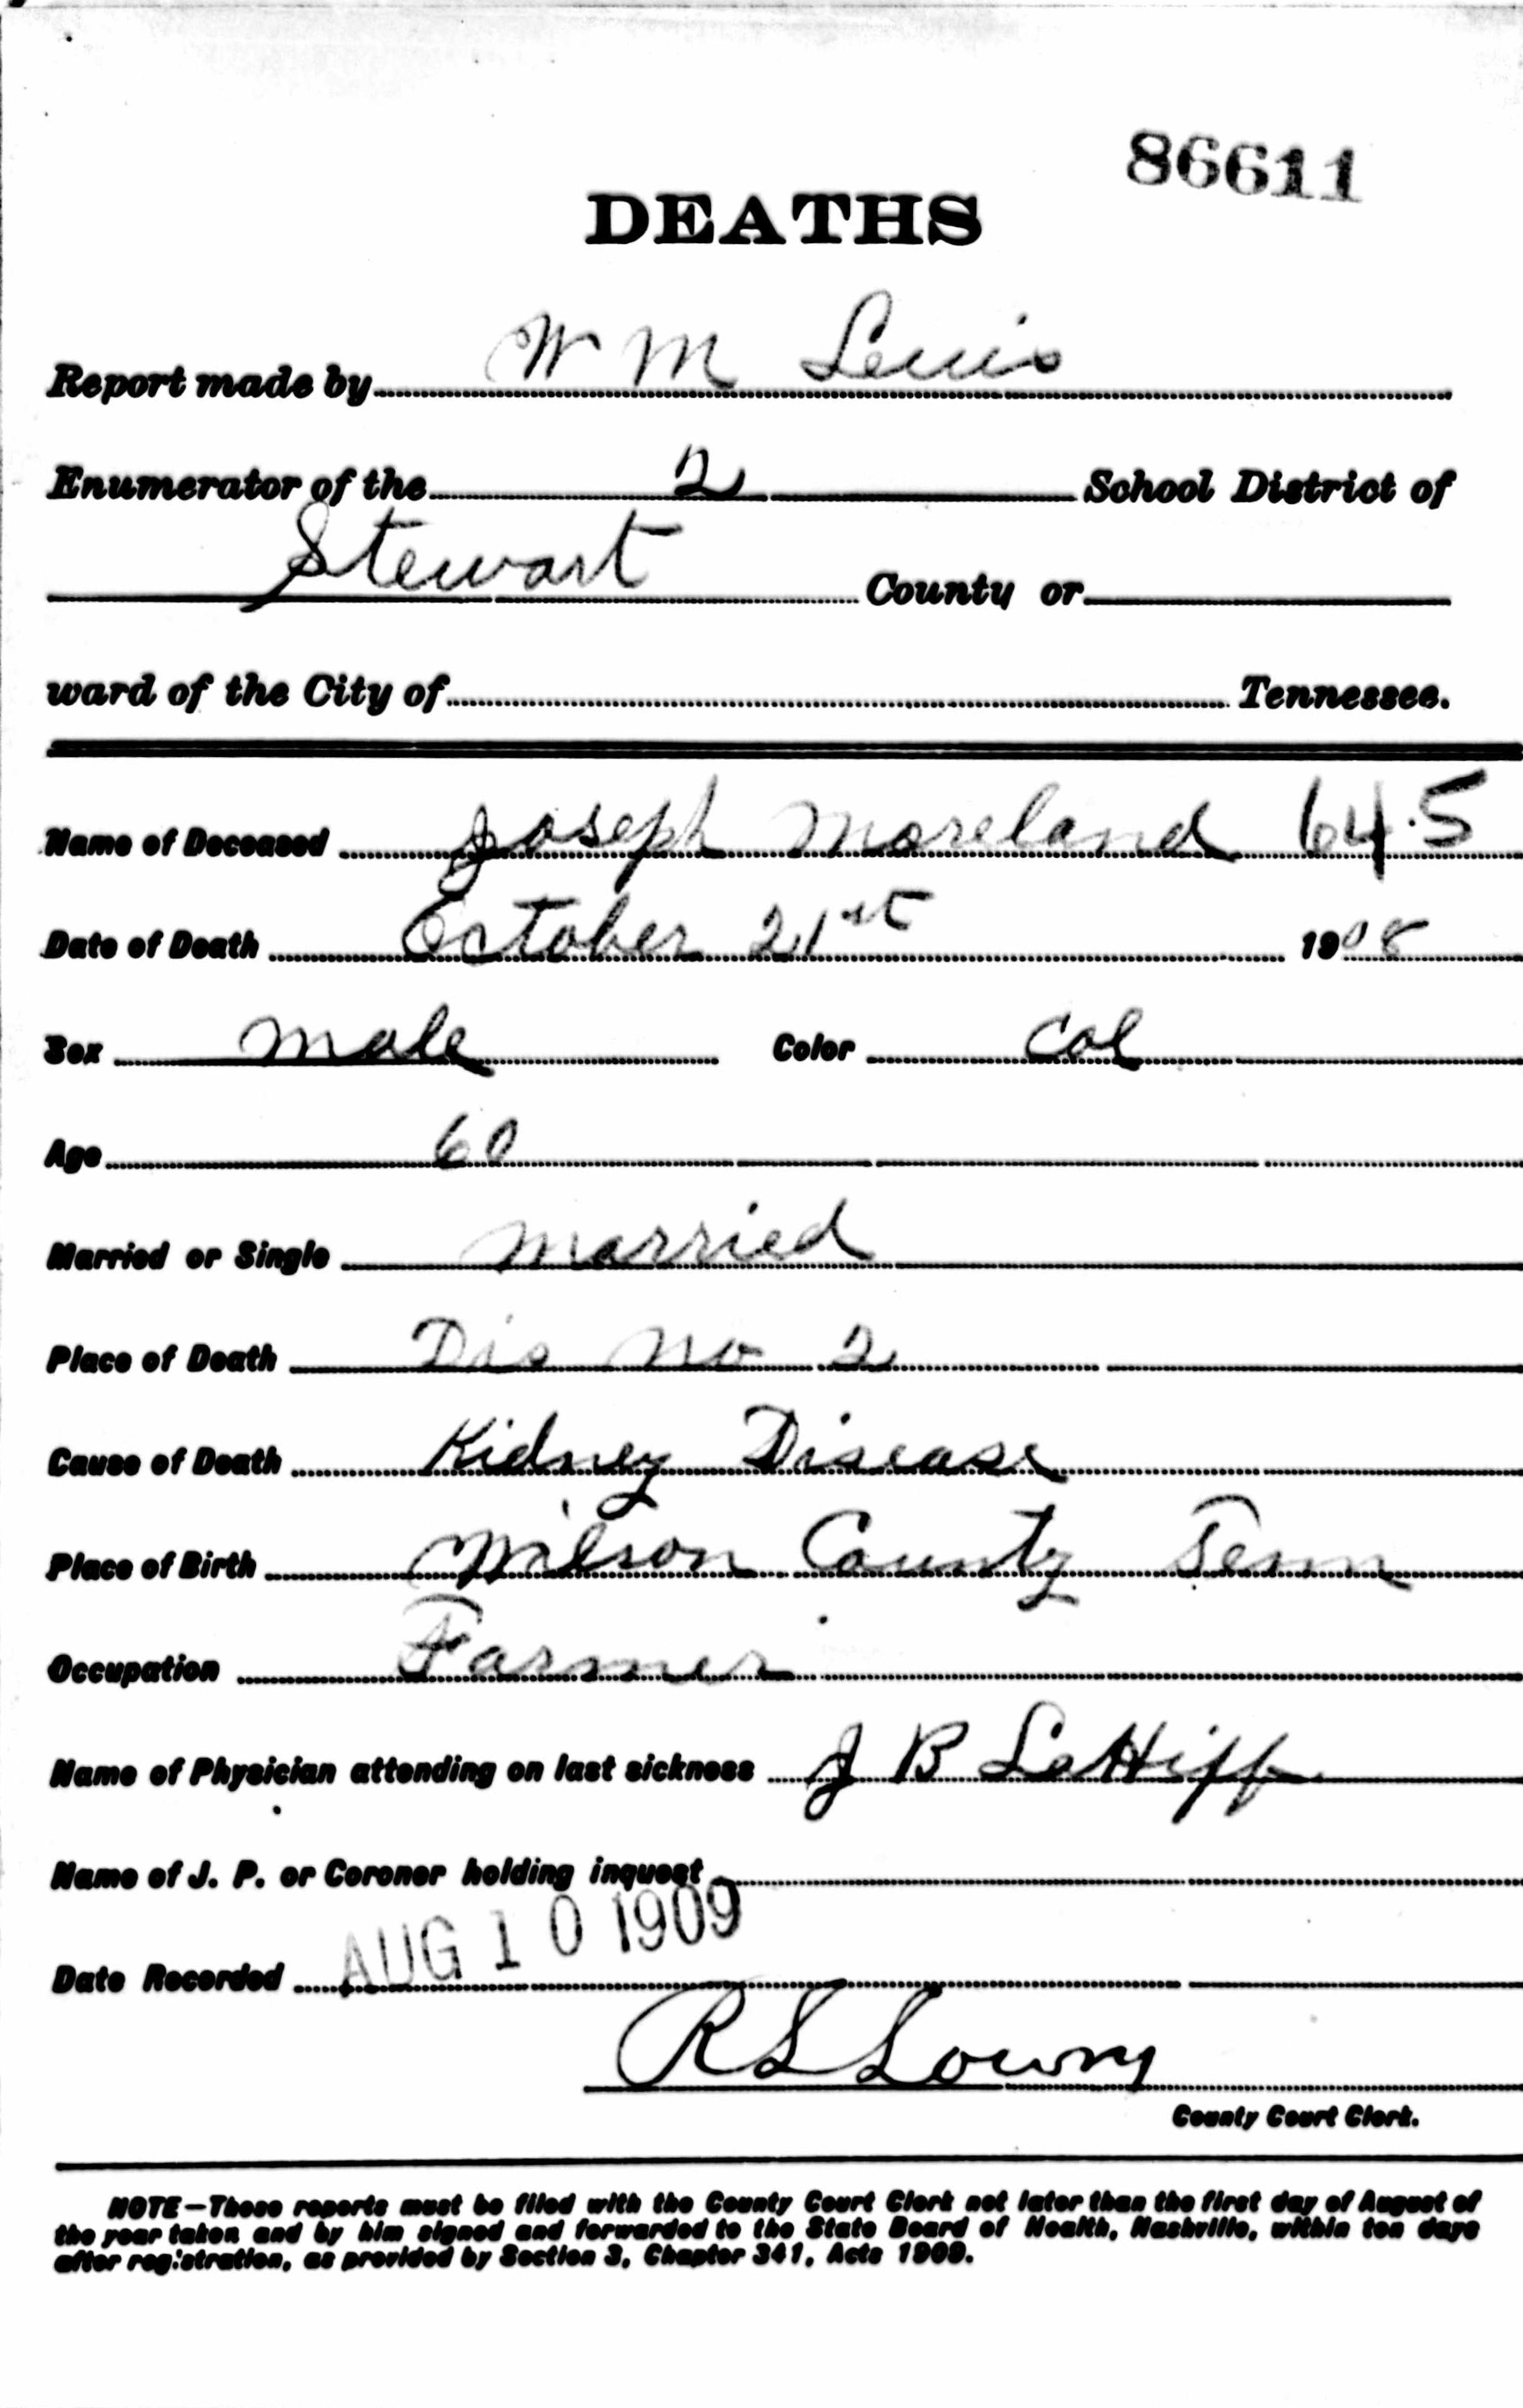 86611
DEATHS
Report made by W M Lewis
Enumerator of the 2 School District of
Stewart County or
ward of the City of Tennessee.
Name of Deceased Joseph Moreland 64.5
Date of Death October 21st 1908
Sex male Color Col
Age 60
Married or Single married
Place of Death Dis No 2
Cause of Death Kidney Disease
Place of Birth Wilson County Tenn
Occupation Farmer
Name of Physician attending on last sickness J B
Name of J. P. or Coroner holding inquest
Date Recorded AUG 10 1909
R L Lowry
County Court Clerk.
NOTE—These reports must be filed with the County Court Clerk not later than the first day of August of
the year taken and by him signed and forwarded to the State Board of Health, Nashville, within ten days
after registration, as provided by Section 3, Chapter 341, Acts 1909.